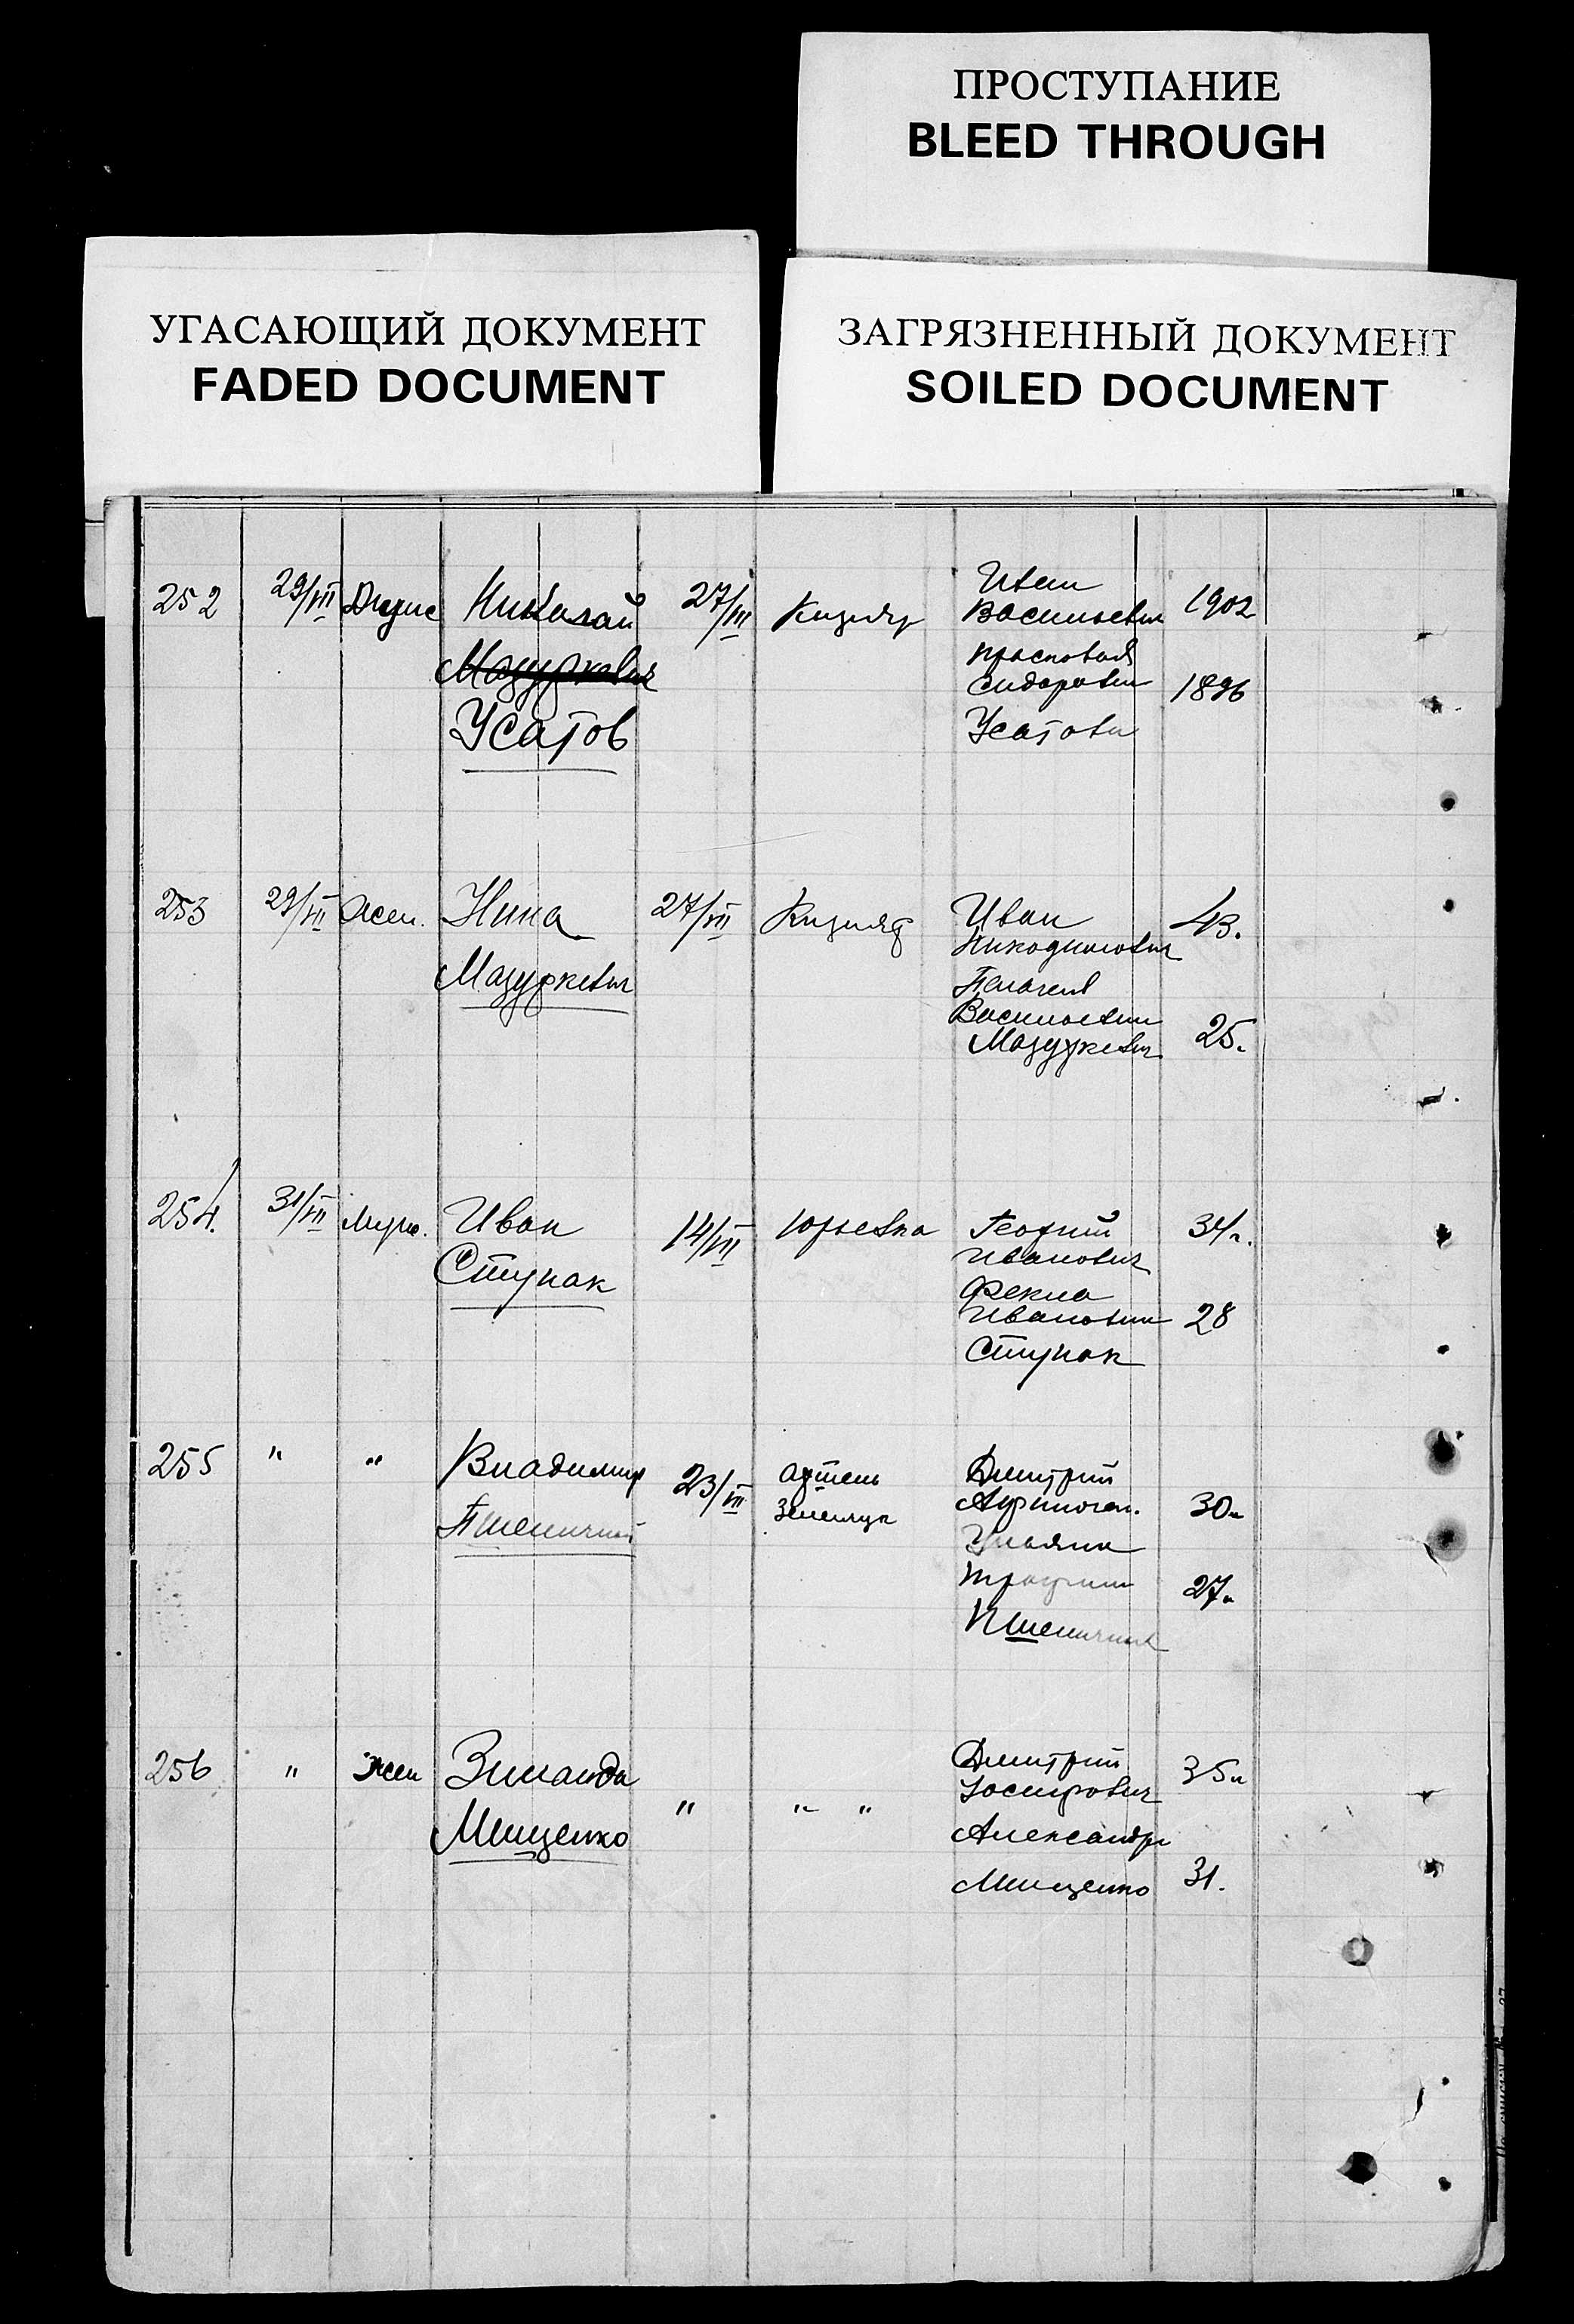 ПРОСТУПАНИЕ
BLEED THROUGH
УГАСАЮЩИЙ ДОКУМЕНТ
FADED DOCUMENT
ЗАГРЯЗНЕННЫЙ ДОКУМЕНТ
SOILED DOCUMENT
252 29/VII Николай 27/VII Кизияр Иван Васильевич 1902
Мазуркевич Прасковья Сидоровн 1896
Усатов Усатовы
253 29/VII Жен. Нина 27/VII Кизияр Иван 43.
Никодимович
Мазуркевич Пелагея
Васильевн 25.
Мазуркевич
254. 31/VII Мужс. Иван 14/VII Юрьевка Георгий 34 г.
Иванович
Ступак Фекла
Ивановн 28
Ступак
255 " " Владимир 23/VII Артель Дмитрий
Земляк 30 г.
Пшеничный Ульяна
Трофим 27 г.
Пшеничный
256 " Жен Зинаида " " " Дмитрий 35 г.
Иосифович
Мищенко Александра
Мищенко 31.